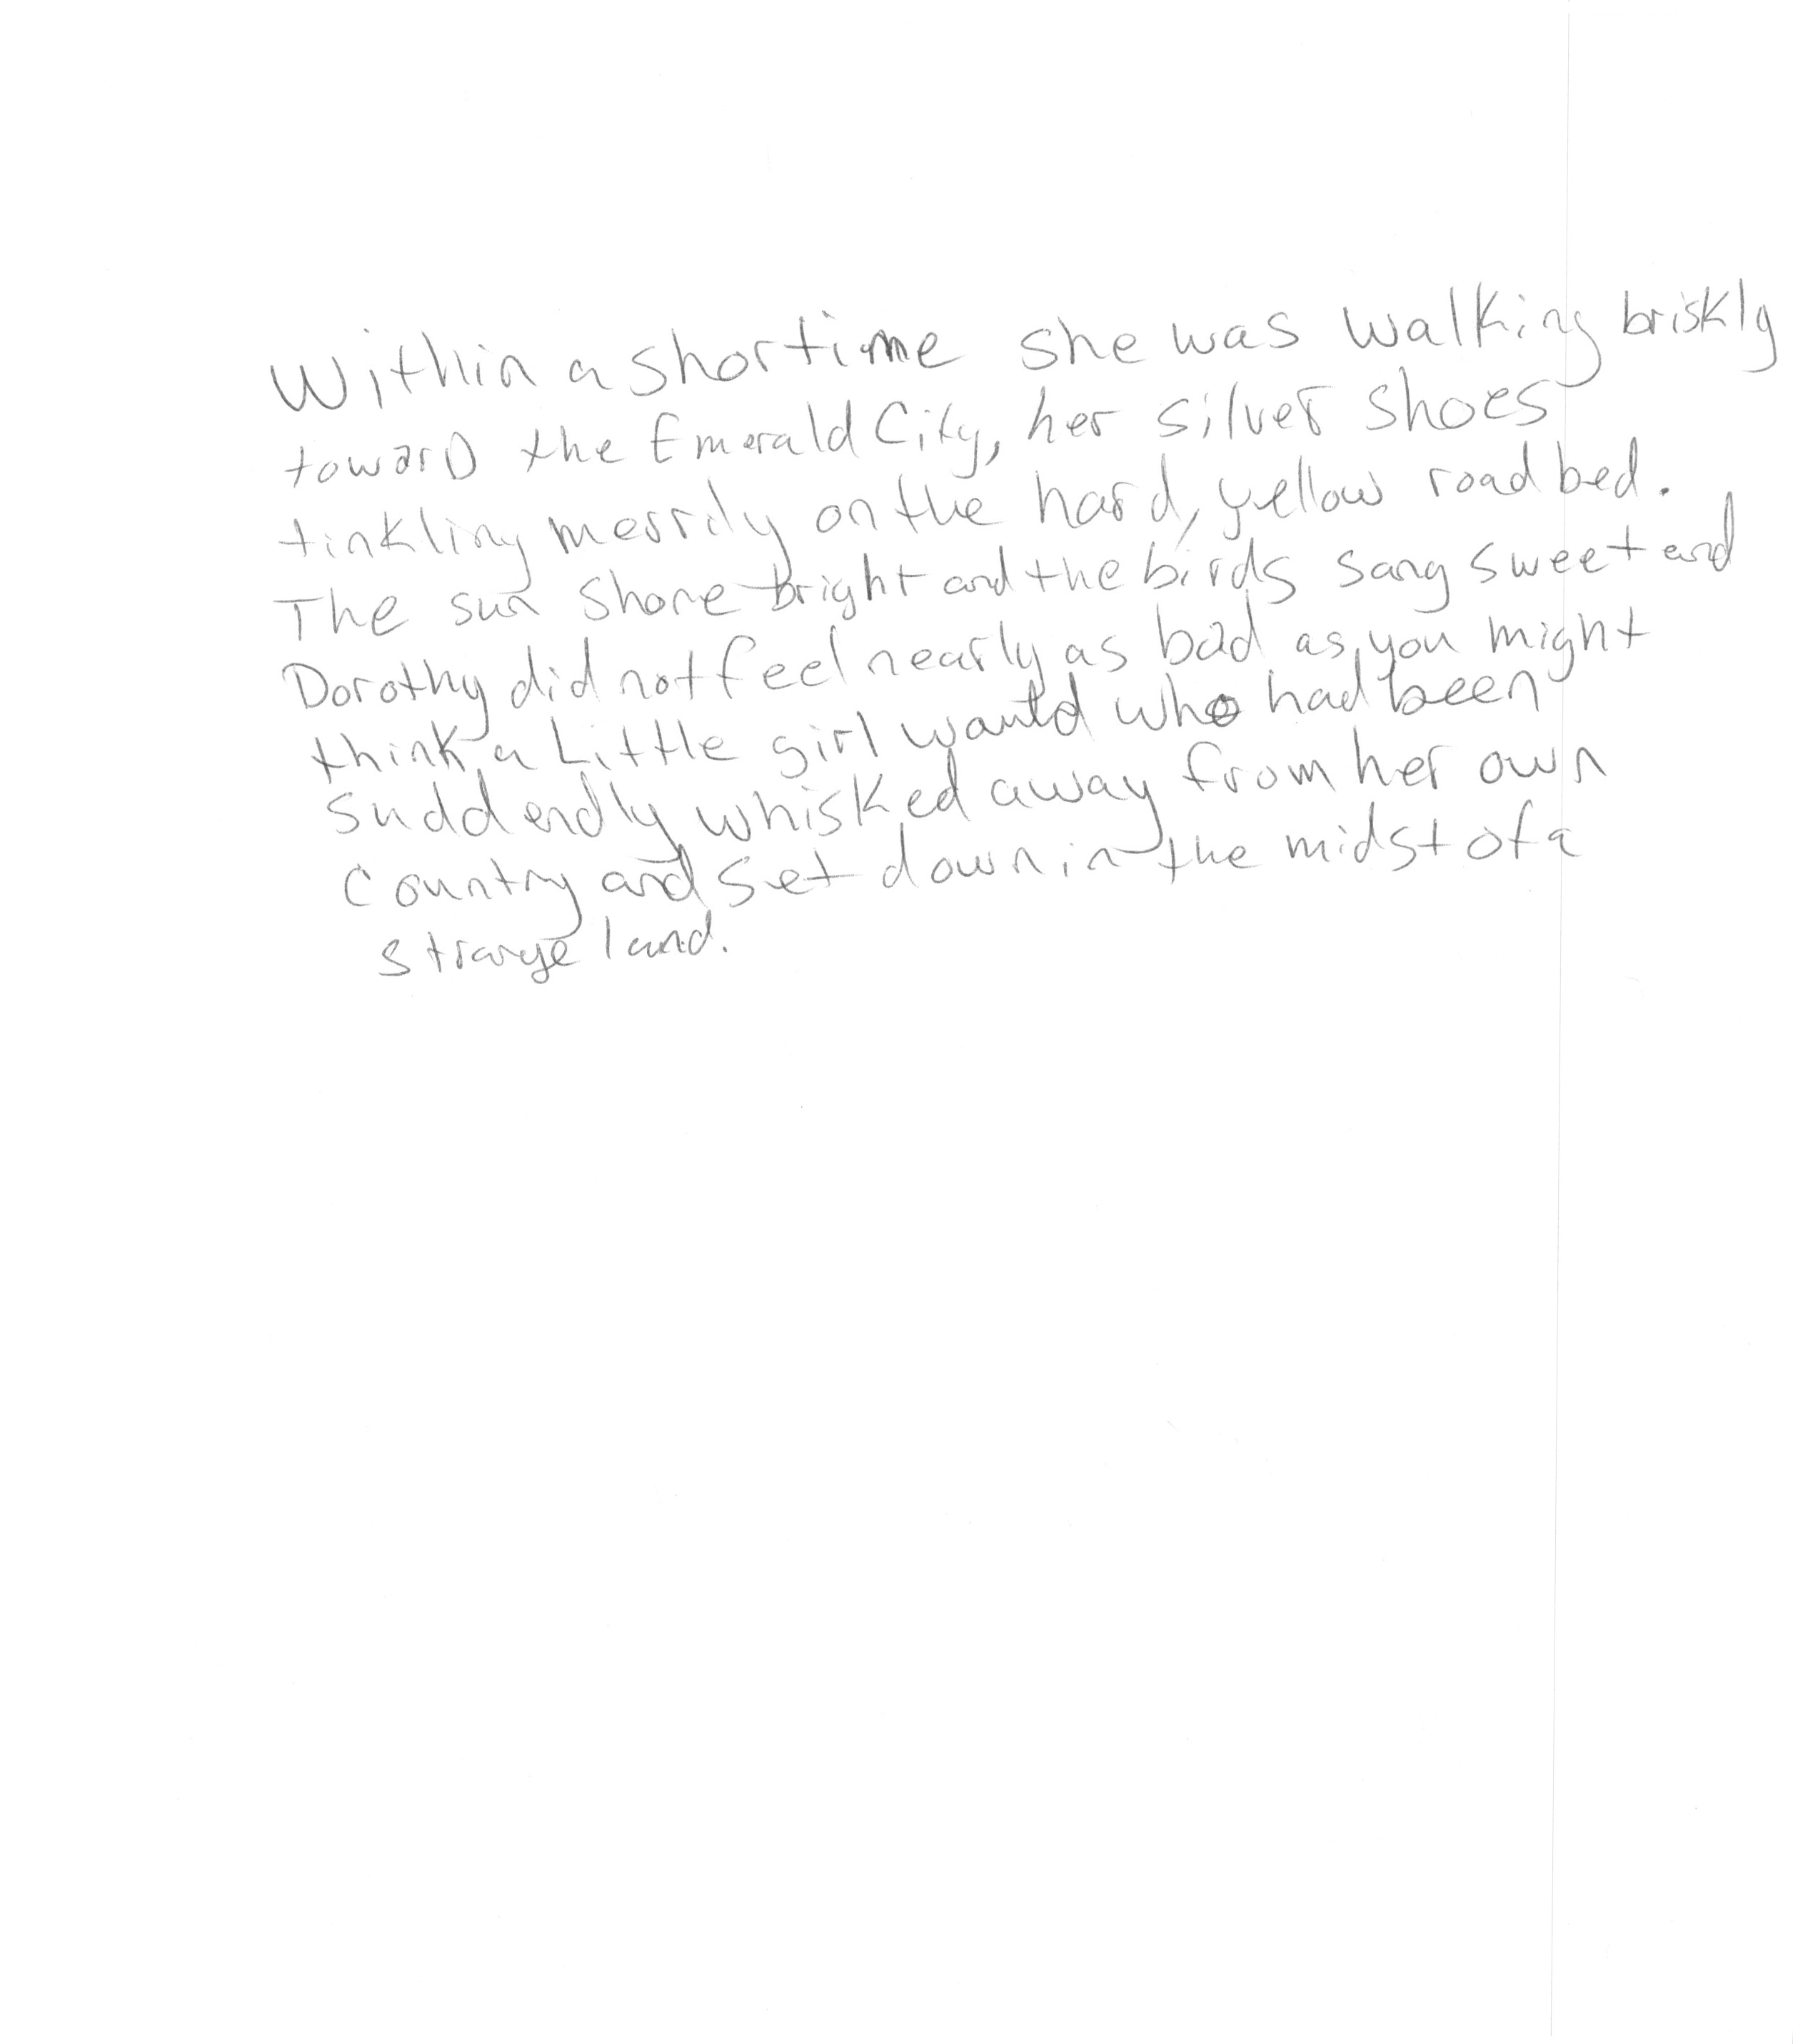 Within a shortime she was walking briskly
toward the Emerald City, her silver shoes
tinkling merrily on the hard, yellow road bed.
The sun shone bright and the birds sang sweet and
Dorothy did not feel nearly as bad as you might
think a Little girl would who had been
suddendly whisked away from her own
country and set down in the midst of a
strange land.